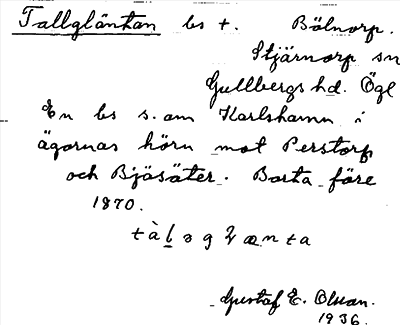 Tallgläntan bs +. Bölnorp.
Stjärnorp sn
Gullbergs hd. Ögl
En bs s. om Karlshamn i
ägornas hörn mot Perstorp
och Bjäsäter. Borta före
1870.
Gustaf E. Olsson.
1936.